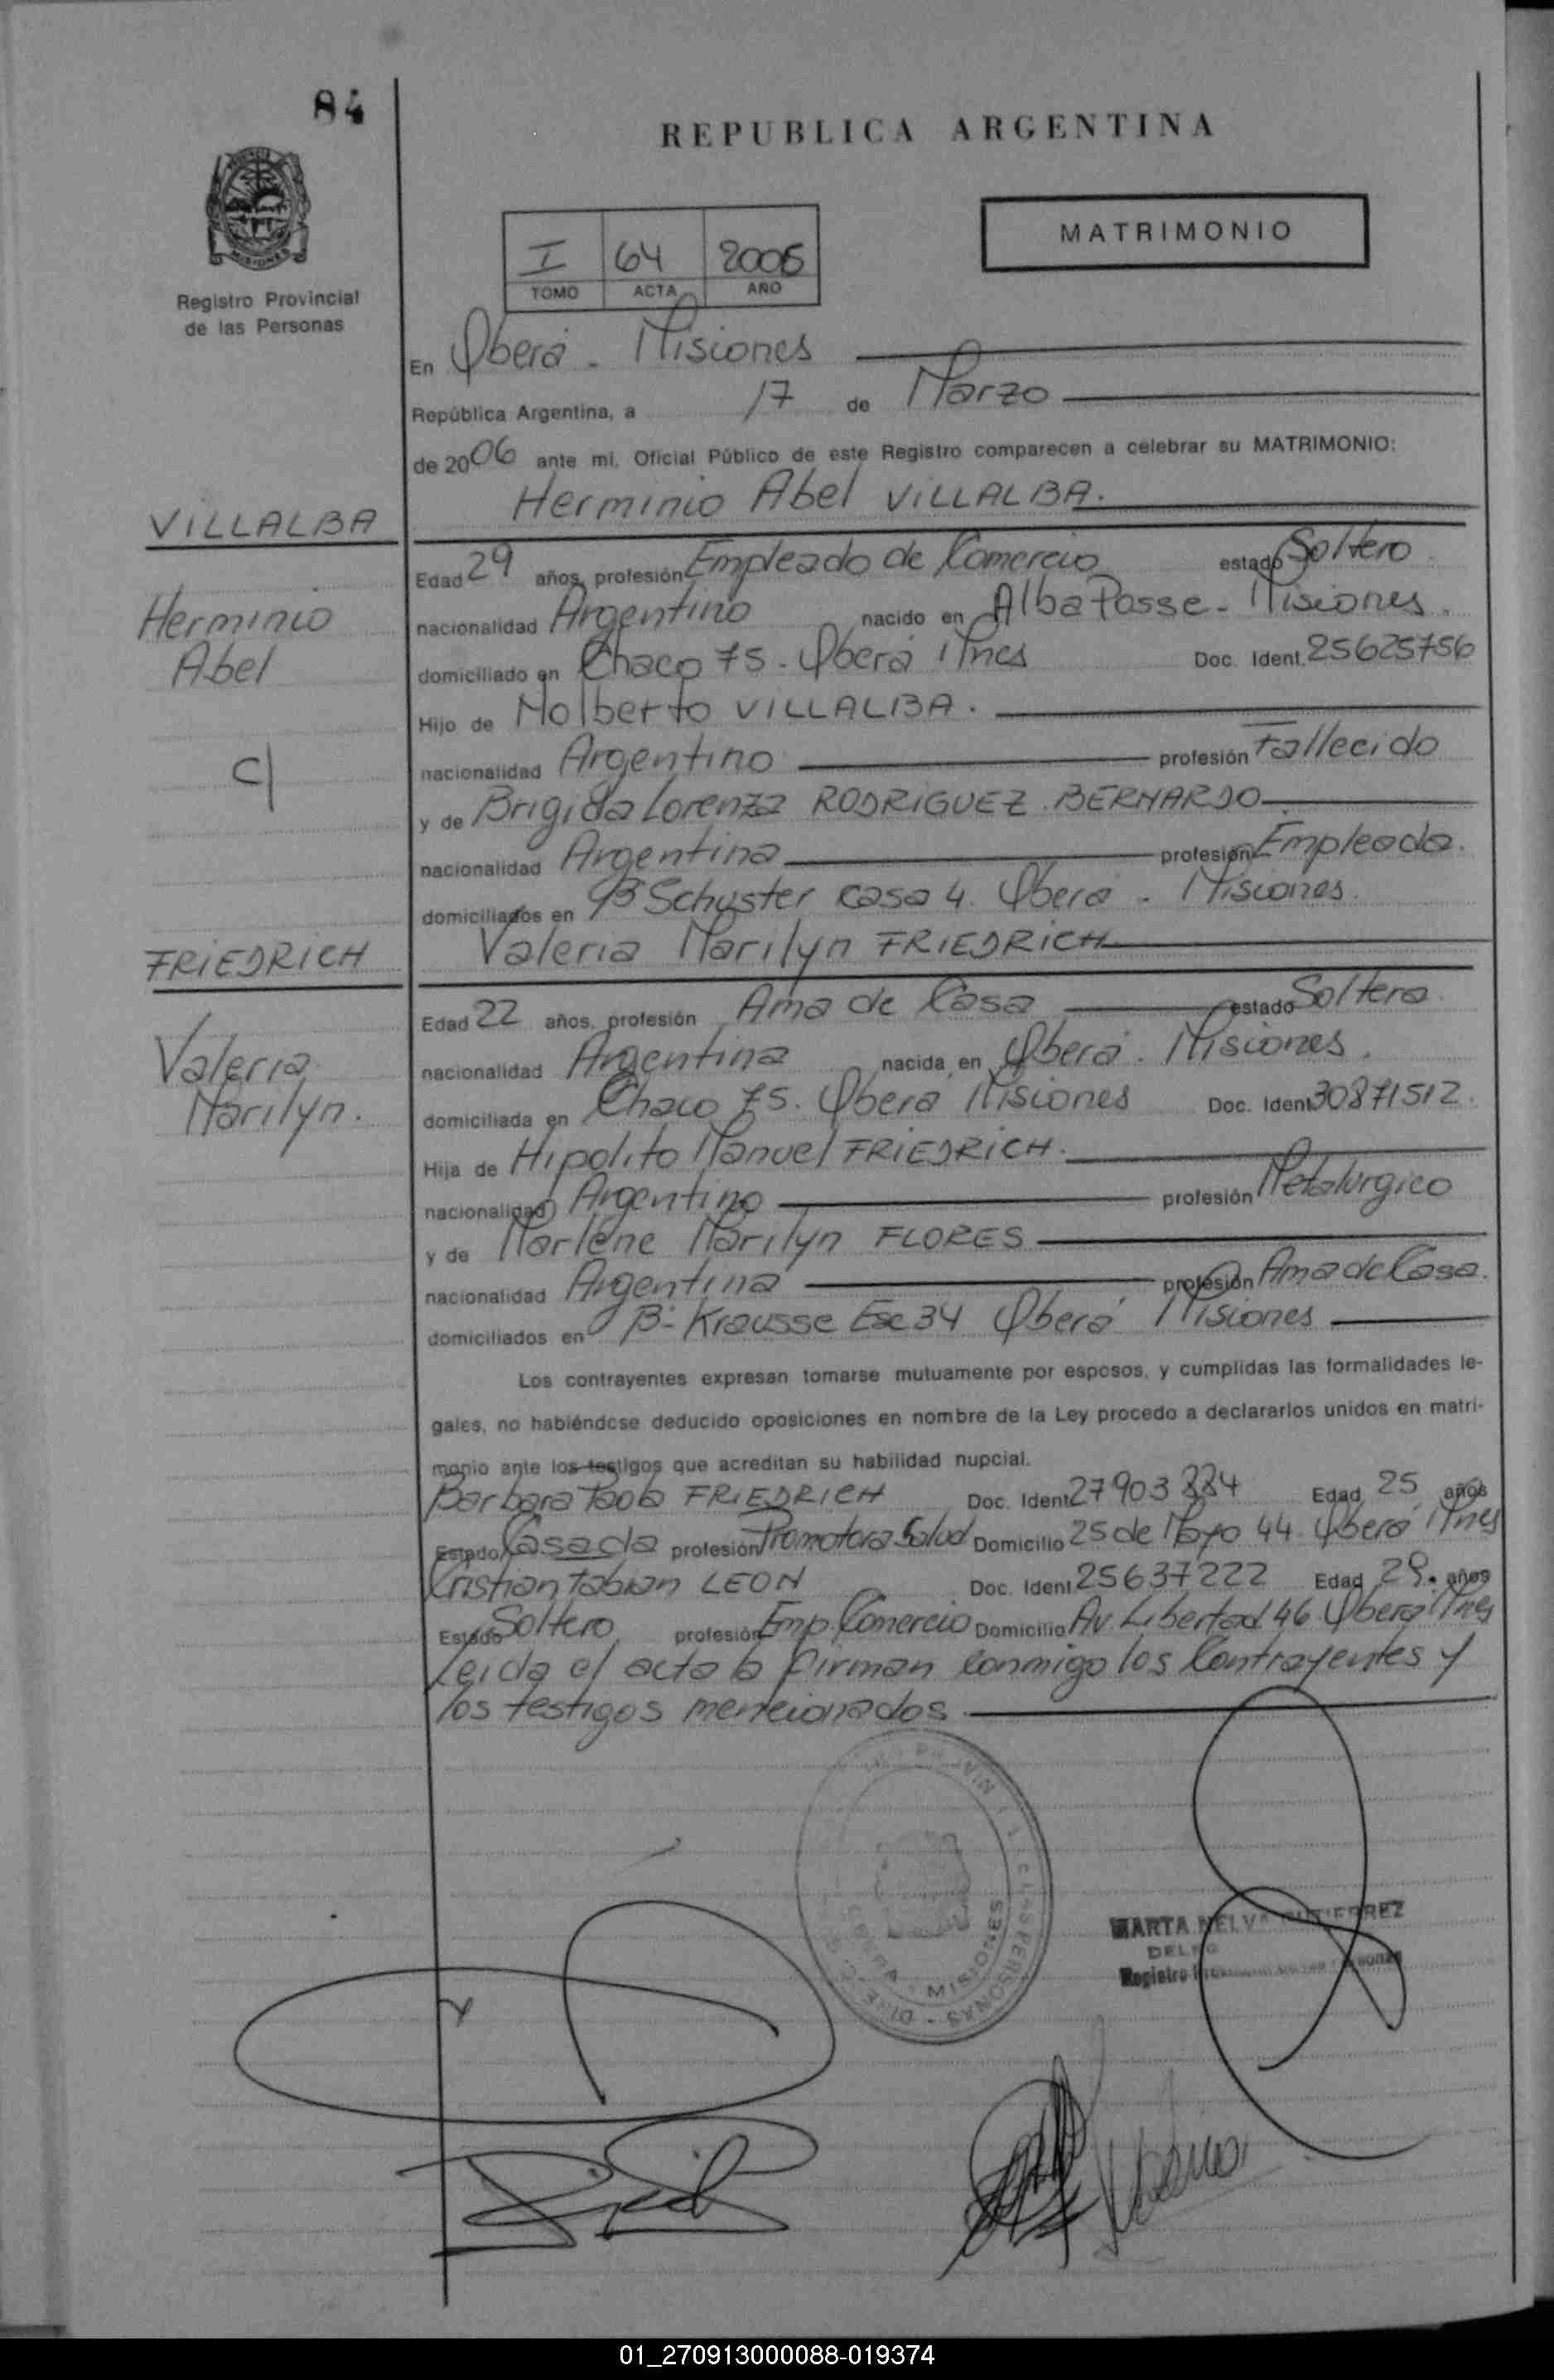 84
REPUBLICA ARGENTINA
MATRIMONIO
I 64 2006
TOMO ACTA AÑO
Registro Provincial
de las Personas
En Oberá - Misiones
República Argentina, a 17 de Marzo
de 2006 ante mi, Oficial Público de este Registro comparecen a celebrar su MATRIMONIO:
Herminio Abel VILLALBA.
VILLALBA
Edad 29 años, profesión Empleado de Comercio estado Soltero
Herminio
nacionalidad Argentino nacido en Alba Posse - Misiones.
Abel
domiciliado en Chaco 75 - Oberá Mnes Doc. Ident. 25625756
Hijo de Nolberto VILLALBA.
c/
nacionalidad Argentino profesión Fallecido
y de Brigida Lorenza RODRIGUEZ BERNARDO
nacionalidad Argentina profesión Empleada.
domiciliados en Bº Schuster casa 4. Oberá - Misiones.
Valeria Marilyn FRIEDRICH
FRIEDRICH
Edad 22 años, profesión Ama de Casa estado Soltera.
Valeria
nacionalidad Argentina nacida en Oberá. Misiones.
Marilyn.
domiciliada en Chaco 75. Oberá Misiones Doc. Ident 30871512.
Hija de Hipolito Manuel FRIEDRICH.
nacionalidad Argentino profesión Metalurgico
y de Marlene Marilyn FLORES
nacionalidad Argentina profesión Ama de Casa.
domiciliados en Bº Krausse Esc 34 Oberá Misiones
Los contrayentes expresan tomarse mutuamente por esposos, y cumplidas las formalidades le-
gales, no habiéndose deducido oposiciones en nombre de la Ley procedo a declararlos unidos en matri-
monio ante los testigos que acreditan su habilidad nupcial.
Barbara Paola FRIEDRICH Doc. Ident 27903884 Edad 25 años
Estado Casada profesión Promotora Salud Domicilio 25 de Mayo 44 Oberá Mnes
Cristian Fabian LEON Doc. Ident. 25637222 Edad 29. años
Estado Soltero profesión Emp. Comercio Domicilio Av. Libertad 46 Oberá Mnes
Leida el acta la firman conmigo los Contrayentes y
los testigos mencionados.
PERSONAS
MISIONES
MARTA NELVA GUTIERREZ
Registro
01_270913000088-019374